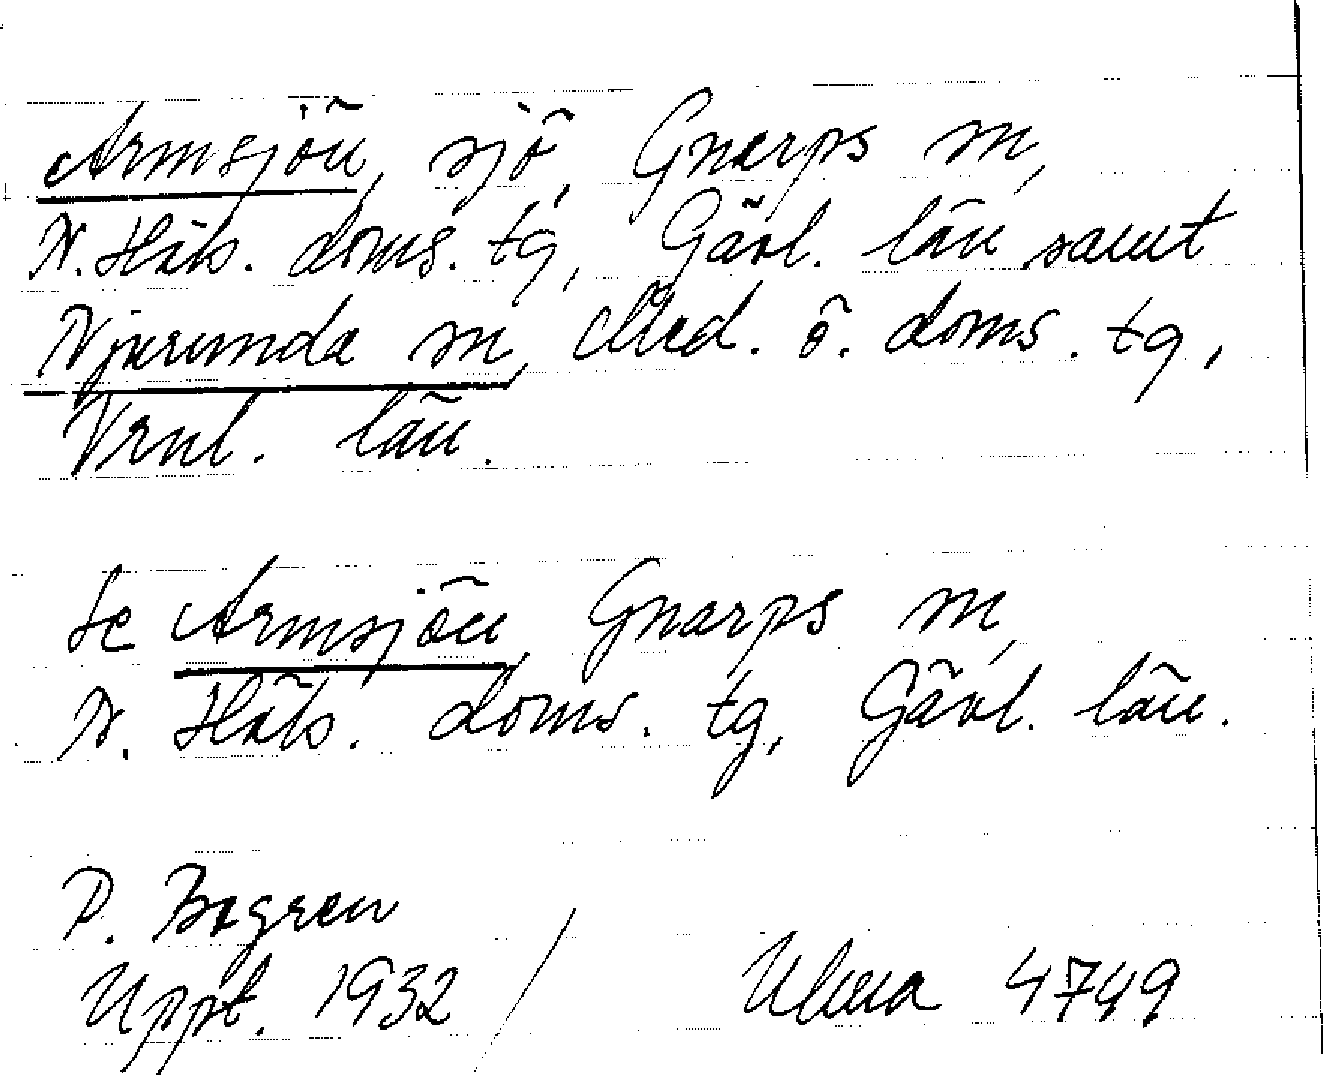 Armsjön, sjö, Gnarps sn,
N. Häls. doms. tg, Gävl. län samt
Njurunda sn, Med. ö. doms. tg,
Vrnl. län.
Se Armsjön, Gnarps sn,
N. Häls. doms. tg, Gävl. län.
P. Bogren
Uppt. 1932 / Ulma 4749